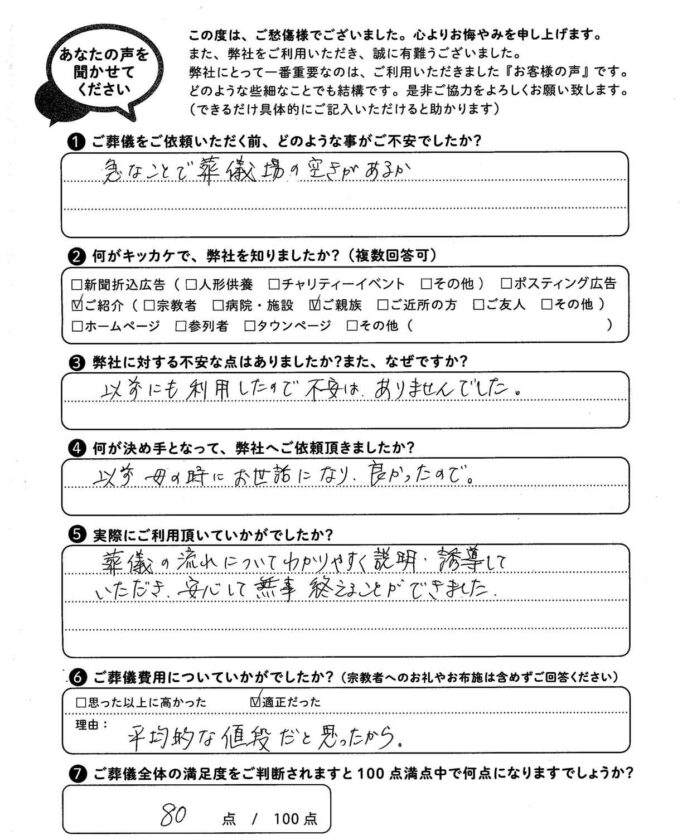 あなたの声を
聞かせて
ください
この度は、ご愁傷様でございました。心よりお悔やみを申し上げます。
また、弊社をご利用いただき、誠に有難うございました。
弊社にとって一番重要なのは、ご利用いただきました『お客様の声』です。
どのような些細なことでも結構です。是非ご協力をよろしくお願い致します。
（できるだけ具体的にご記入いただけると助かります）
❶ ご葬儀をご依頼いただく前、どのような事がご不安でしたか？
急なことで葬儀場の空きがあるか
❷ 何がキッカケで、弊社を知りましたか？（複数回答可）
□新聞折込広告（□人形供養 □チャリティーイベント □その他） □ポスティング広告
☑ご紹介（□宗教者 □病院・施設 ☑ご親族 □ご近所の方 □ご友人 □その他）
□ホームページ □参列者 □タウンページ □その他（ ）
❸ 弊社に対する不安な点はありましたか？また、なぜですか？
以前にも利用したので不安は、ありませんでした。
❹ 何が決め手となって、弊社へご依頼頂きましたか？
以前 母の時にお世話になり、良かったので。
❺ 実際にご利用頂いていかがでしたか？
葬儀の流れについてわかりやすく説明、誘導して
いただき、安心して無事 終えることができました。
❻ ご葬儀費用についていかがでしたか？（宗教者へのお礼やお布施は含めずご回答ください）
□思った以上に高かった ☑適正だった
理由：
平均的な値段だと思ったから。
❼ ご葬儀全体の満足度をご判断されますと100点満点中で何点になりますでしょうか？
80 点 / 100点